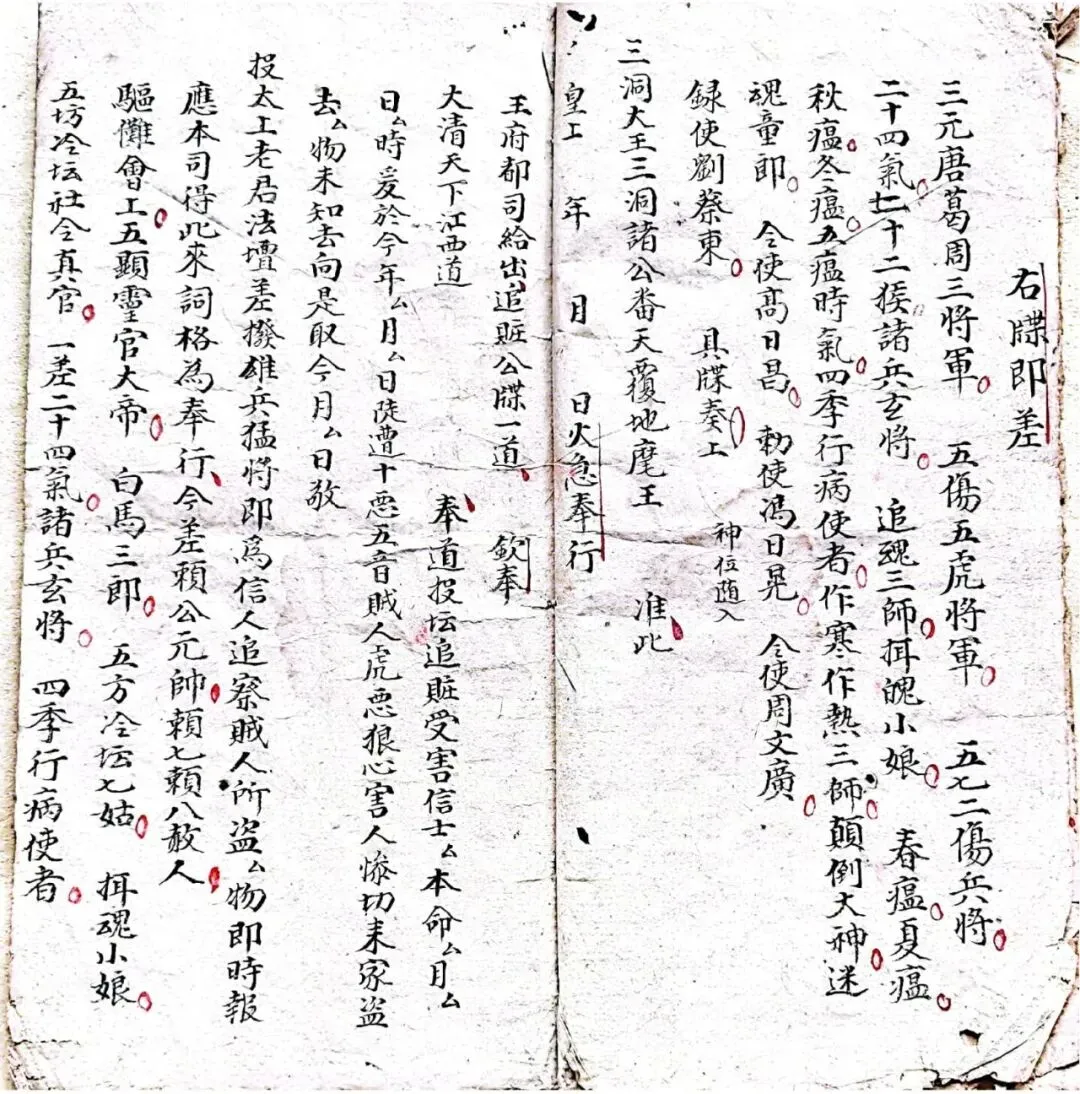 右牒即差
三元唐葛周三將軍 五傷五虎將軍 五七二傷兵將
二十四氣七十二猴諸兵玄將 追魂三師挕魄小娘 春瘟夏瘟
秋瘟冬瘟五瘟時氣四季行病使者作寒作熱三師顛倒大神迷
魂童郎 令使高日昌 勅使馮日晃 令使周文廣
録使劉蔡東 具牒奏上 神位随入
三洞大王三洞諸公番天覆地麾王 准此
皇上 年 月 日火急奉行
王府都司給出追賍公牒一道 欽奉
大清天下江西道 奉道投坛追賍受害信士厶本命厶月厶
日厶時爰於今年厶月厶日陡遭十惡五音賊人虎惡狼心害人慘切来家盗
去厶物未知去向是取今月厶日敬
投太上老君法壇差撥雄兵猛将即爲信人追察賊人所盗厶物即時報
應本司得此來詞格為奉行今差賴公元帥賴七賴八赦人
驅儺會上五顯靈官大帝 白馬三郎 五方冷坛七姑 挕魂小娘
五坊冷坛社令真官 一差二十四氣諸兵玄將 四季行病使者